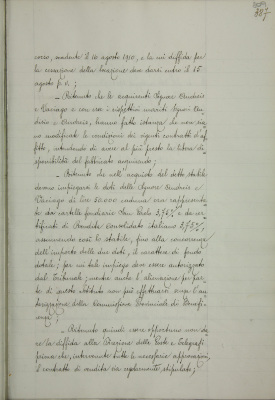 corso, scadente il 10 agosto 1910, e la cui diffida per
la cessazione della locazione deve darsi entro il 15
agosto p. v.;
— Ritenuto che le acquirenti Signore Andreis
e Daviago e con esse i rispettivi mariti Signori
e Andreis, hanno fatto istanza che non siano
modificate le condizioni dei vigenti contratti d'af-
fitto, intendendo di avere al più presto la libera di-
sponibilità del fabbricato acquistando;
— Ritenuto che nell'acquisto del detto stabile
devono impiegarsi le doti delle Signore Andreis e
Daviago di lire 50.000 caduna ora rappresenta-
te da cartelle fondiarie San Paolo 3,75% e da cer-
tificati di Rendita Consolidato italiano 3,75%,
assumendo così lo stabile, fino alla concorrenza
dell'importo delle due doti, il carattere di fondo
dotale; per cui tale impiego deve essere autorizzato
dal Tribunale; mentre anche l'alienazione per par-
te di questo Istituto non può effettuarsi senza l'au-
torizzazione della Commissione Provinciale di Benefi-
cenza;
— Ritenuto quindi essere opportuno non da-
re la diffida alla Direzione delle Poste e Telegrafi
prima che, intervenute tutte le necessarie approvazioni,
il contratto di vendita sia regolarmente stipulato;